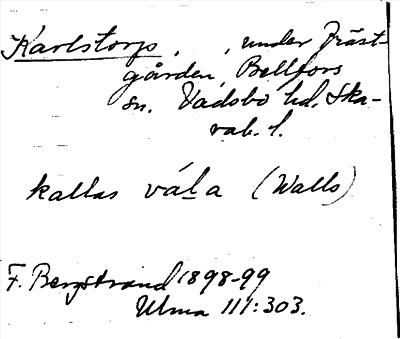 Karlstorp, , under Präst-
gården, Bellfors
sn. Vadsbo hd. Ska-
rab. l.
kallas vála (Walls)
F. Bergstrand 1898-99
Ulma 111:303.